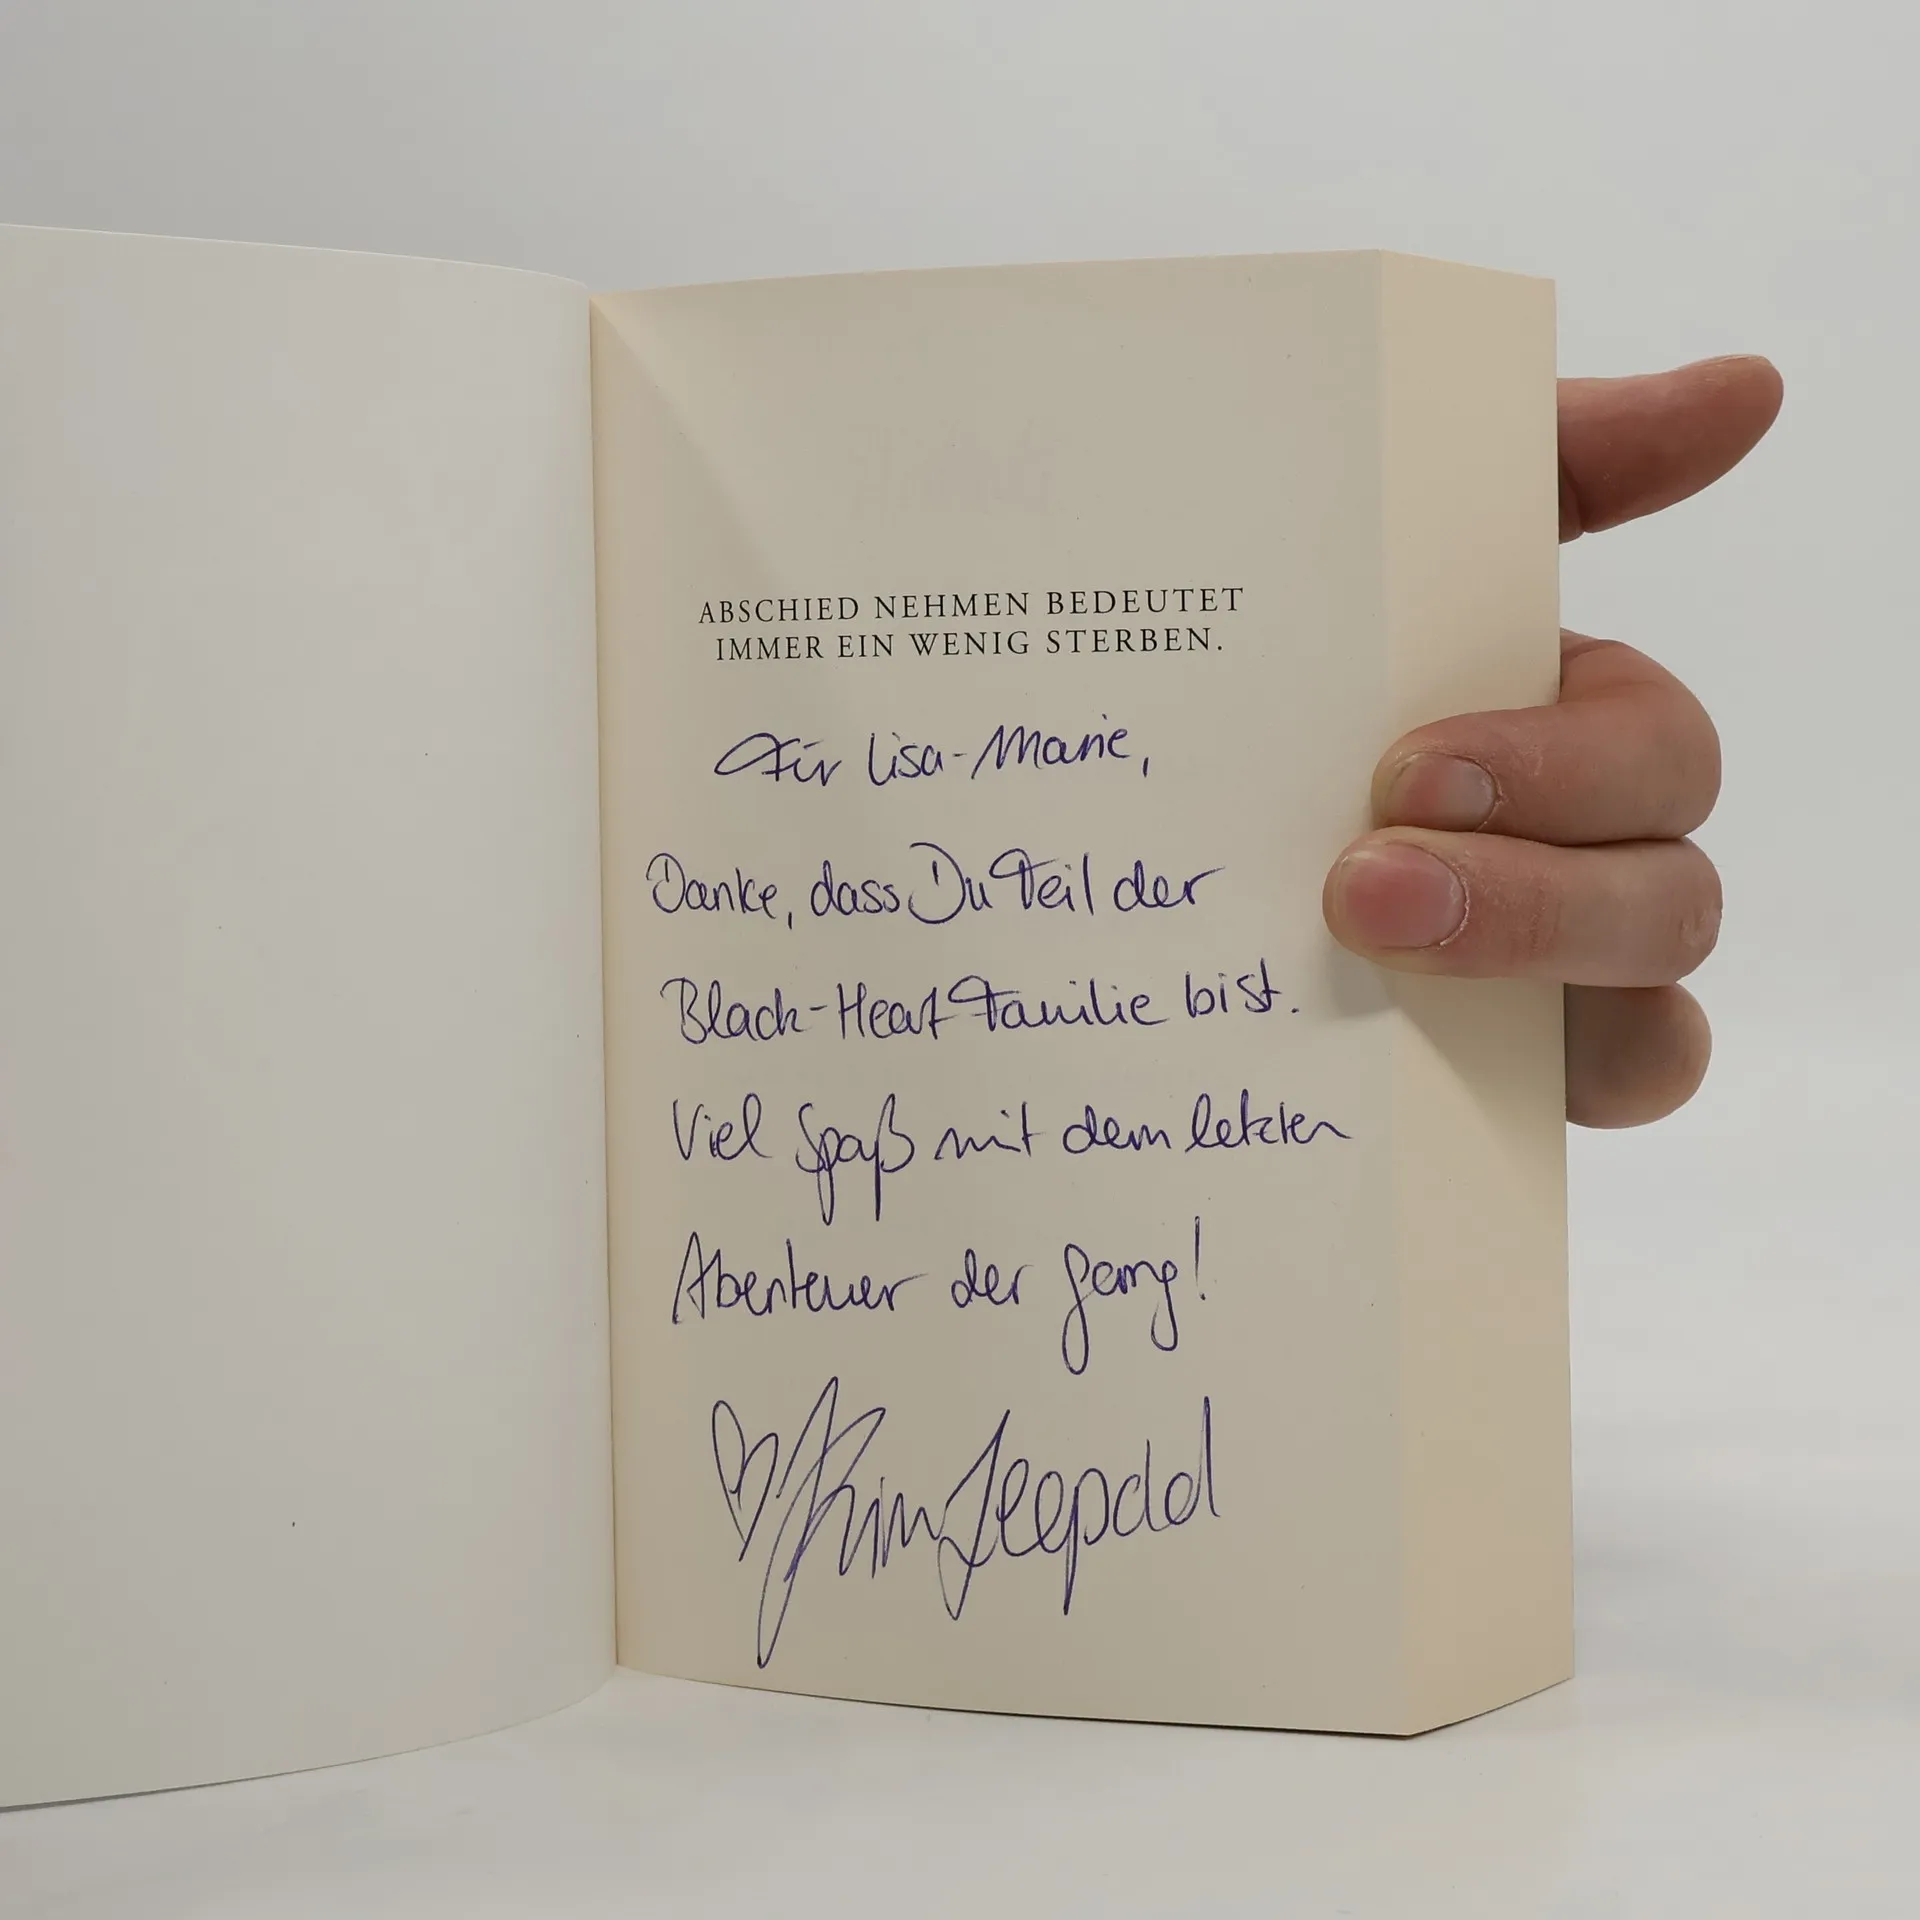 ABSCHIED NEHMEN BEDEUTET
IMMER EIN WENIG STERBEN.
Für Lisa-Marie,
Danke, dass Du Teil der
Black-Heart Familie bist.
Viel Spaß mit dem letzten
Abenteuer der Gang!
Kim Leopold